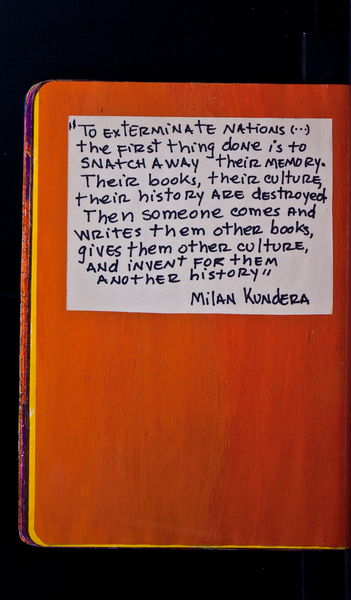 "To exterminate nations (...)
the first thing done is to
snatch away their memory.
Their books, their culture,
their history are destroyed.
Then someone comes and
writes them other books,
gives them other culture,
and invent for them
another history"
Milan Kundera